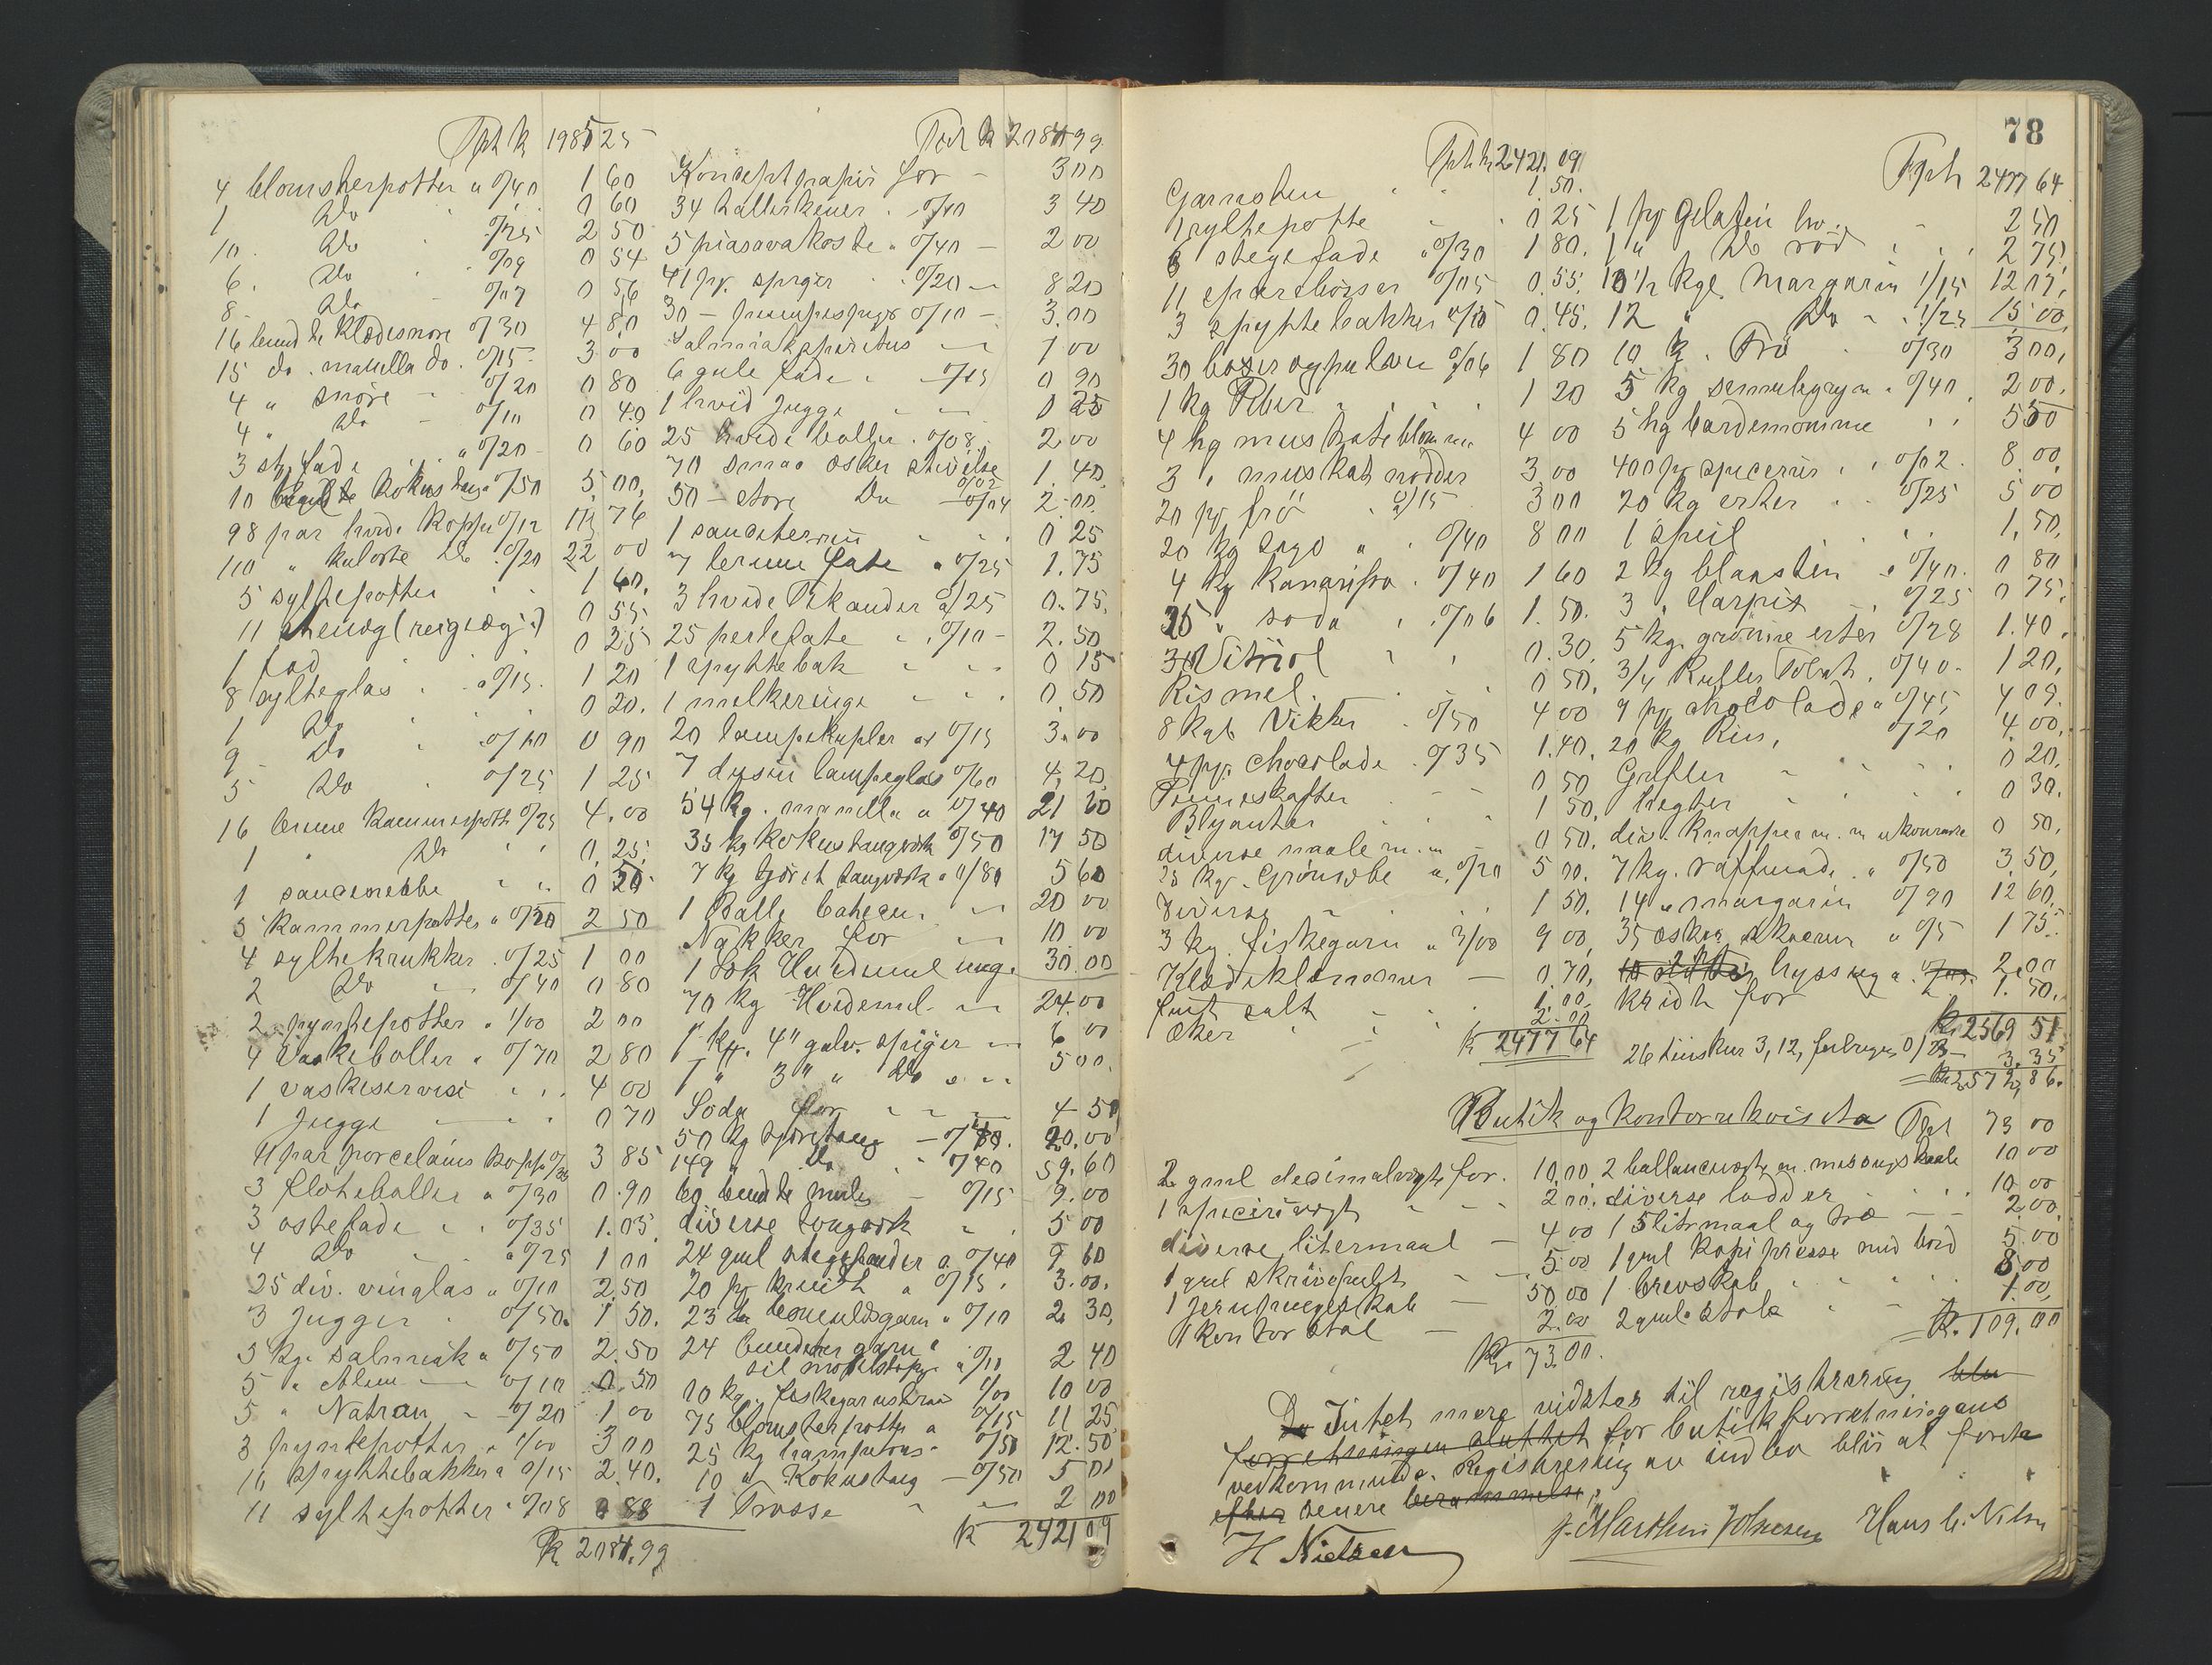 Tpt k 1985 25
4 blomsterpotter a 0/40 1 60
1 Do 0 60
10 Do 0/25 2 50
6 Do 0/09 0 54
8 Do 0/07 0 56
16 bundte Klædesnore 0/30 4 80
15 do. manilla do. 0/15 3 00
4 " snöre 0/20 0 80
4 " Do 0/10 0 40
3 stk fade a 0/20 0 60
10 kokustaug 0/50 5,00
98 par hvide kopper 0/12 11 76
110 " kulörte Do 0/20 22 00
5 syltepotter 1 60
11 stenæg (reiræg) 0 55
1 fad 0 25
8 sylteglas a 0/15 1 20
1 Do 0 20
9 Do 0/10 0 90
5 Do 0/25 1 25
16 brune kammerpotter 0/25 4.00
1 " Do 0,25
1 saucenebbe 0 50
5 kammerpotter a 0/50 2 50
4 syltekrukker 0/25 1 00
2 Do 0/40 0 80
2 pyntepotter a 1/00 2 00
4 Vaskeboller a 0/70 2 80
1 vaskeservise 4 00
1 Jugge 0 70
11 par porcelains kopper 0/35 3 85
3 flöteboller a 0/30 0.90
3 ostefade 0/35 1.05
4 Do a 0/25 1 00
25 div. vinglas a 0/10 2.50
3 Jugger 0/50 1 50
5 kg. salmiak a 0/50 2.50
5 " Alun 0/10 0.50
5 " Natron 0/20 1 00
3 pyntepotter a 1/00 3 00
16 spyttebakker a 0/15 2.40
11 syltepotter 0/08 0 88
k 2084.99
Tpt k 2084 99
Konceptpapir for 3 00
34 tallerkener 0/10 3 40
5 piasavakoste a 0/40 2 00
41 pk. spiger 0/20 8 20
30 - 0/10 3.00
Salmiakspiritus 1 00
6 gule fade 0/15 0 90
1 hvid Jugge 0 25
25 hvide boller 0/08 2 00
70 smaa æsker stivelse 0/02 1.40
50 - store Do 0/04 2.00
1 sauceterrin 0 25
7 brune fate a 0/25 1.75
3 hvide Pikander a/25 0.75
25 perlefate 0/10 2.50
1 spyttebak 0 15
1 melkeringe 0,50
20 lampekupler a 0/15 3.00
7 dysin lampeglas 0/60 4,20
54 kg. manilla a 0/40 21 60
35 kg kokustaugverk 0/50 17 50
7 kg tjæret taugverk a 0/80 5 60
1 Balle 20 00
Nakker for 10 00
1 Sæk Hvedemel ung. 30.00
70 kg Hvedemel 24.00
1 kp. 4" galv. spiger 6 00
1 " 3" " Do 5 00
Soda for 4 50
50 kg tjæretaug 20.00
149 " Do 0/40 59.60
60 bundte 0/15 9.00
diverse tougverk 5 00
24 gml stegepander a 0/40 9 60
20 pk. a 0/15 3.00
23 bt bomuldsgarn a 0/10 2 30
24 bundter garn
til a 0/10 2 40
10 kg. fiskegarnstraa 1/00 10 00
75 blomsterpotter a 0/15 11 25
25 kg 0/50 12.50
10 " Kokustaug 0/50 5 00
1 Trosse 2 00
k 2421 09
78
Tpt kr 2421.09
Garnsten 1 50
1 syltepotte 0 25
6 stegefade a 0/30 1 80
11 sparebösser 0/05 0.55
3 spyttebakker a/15 0.45
30 0/06 1 80
1 kg Peber 1 20
4 hg muskateblomme 4 00
3 " muskatnødder 3.00
20 pk frö a/15 3 00
20 kg sago a 0/40 8 00
4 kg kanarifrø 0/40 1 60
25 " soda 0/06 1.50
Vitriol 0.30
Rismel 0 50
8 Vikker 0/50 4 00
4 pk. chocolade 0/35 1.40
Penneskafter 0 50
Blyanter 1 50
diverse naale m. m 0 50
25 kg. Grønsæbe a 0/20 5 00
diverse 1 50
3 kg. fiskegarn a 3/00 9 00
Klædeklemmer 0.70
fint salt 1.00
2.00
k 2477 64
Tpt 2477 64
1 pk gelatin hv. 2 50
1 " Do röd 2 75
10½ kg. Margarin 1/15 12 07
12 " Do 1/25 15 00
10 k. Frö 0/30 3 00
5 kg semulegryn 0/40 2 00
5 hg kardemomme 5 50
400 pk specerier 0/02 8 00
20 kg erter 0/25 5 00
1 speil 1,50
2 kg blaasten a 0/40 0 80
3 " Harpix 0/25 0 75
5 kg. grönne erter 0/28 1.40
3/4 Tobak 0/40 1 20
9 pk chocolade a 0/45 4 05
20 kg Ris 0/20 4.00
Grifler 0 20
Vægter 0 30
div. knapper m. m 0 50
7 kg. raffinade a 0/50 3,50
14 " margarin 0/90 12 60
35 æsker a 0/5 1 75
hyssing a 2.00
kridt for 1.50
k. 2569 51
26 3,12, 3.35
k. 2572,86
Butik og kontorrekvisita Tpt 73 00
2 gml decimalvegte for 10.00
1 specerivegt 2 00
diverse litermaal 4 00
1 gml skrivepult 5.00
1 Jernpengeskab 50 00
1 kontorstol 2.00
Kr. 73.00
2 ballancevægter m. messingskaale 10 00
diverse lodder 10 00
1 5 litermaal og træ 2.00
1 gml kopipresse med bord 5.00
1 brevskab 8 00
2 gml. stole 1.00
k. 109.00
Da Intet mere vidstes til registrering blev
forretningen sluttet for butikforretningens
vedkommende. Registrering av indbo blir at foreta
efter senere berammelse.
H Nielsen J. Marthin Johnsen Hans C. Nilsen